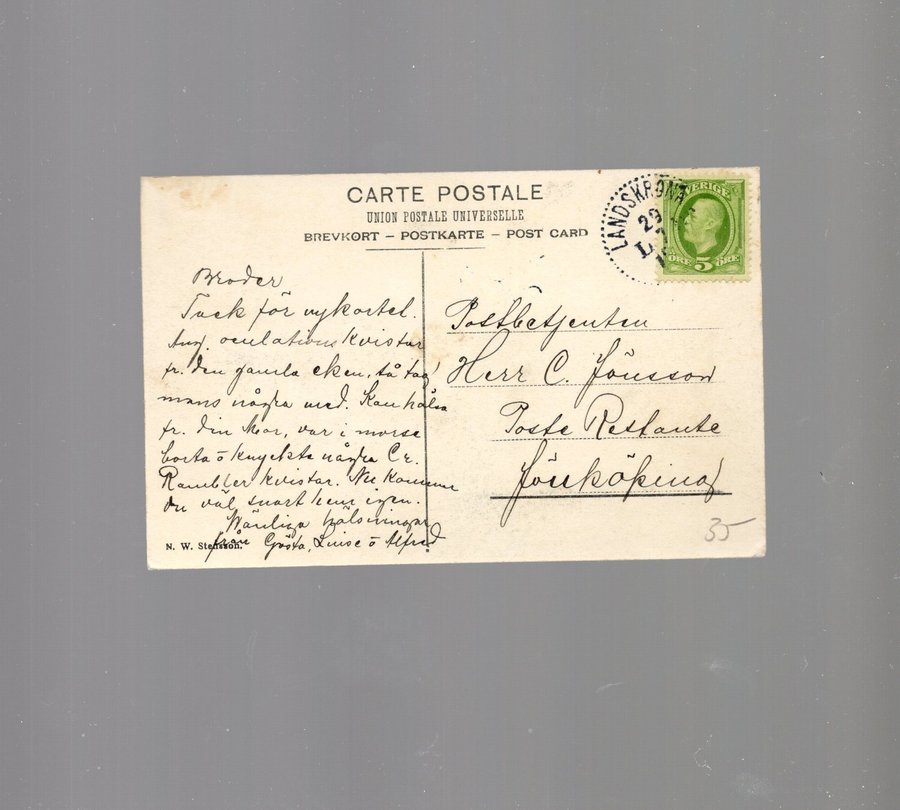 CARTE POSTALE
UNION POSTALE UNIVERSELLE
BREVKORT – POSTKARTE – POST CARD
LANDSKRONA
SVERIGE
5
ÖRE ÖRE
Broder
Tack för vykortet.
Ang. oculationskvistar
fr. den gamla eken, så tag
mans några med. Kan hälsa
fr. din Mor, var i morse
borta o knyckte några Cr.
Rambler kvistar. Nu kommer
du väl snart hem igen.
Vänliga hälsningar
från Gösta, Luise o Alfred
N. W. Stensson.
Postbetjenten
Herr C. Jönsson
Poste Restante
Jönköping
35